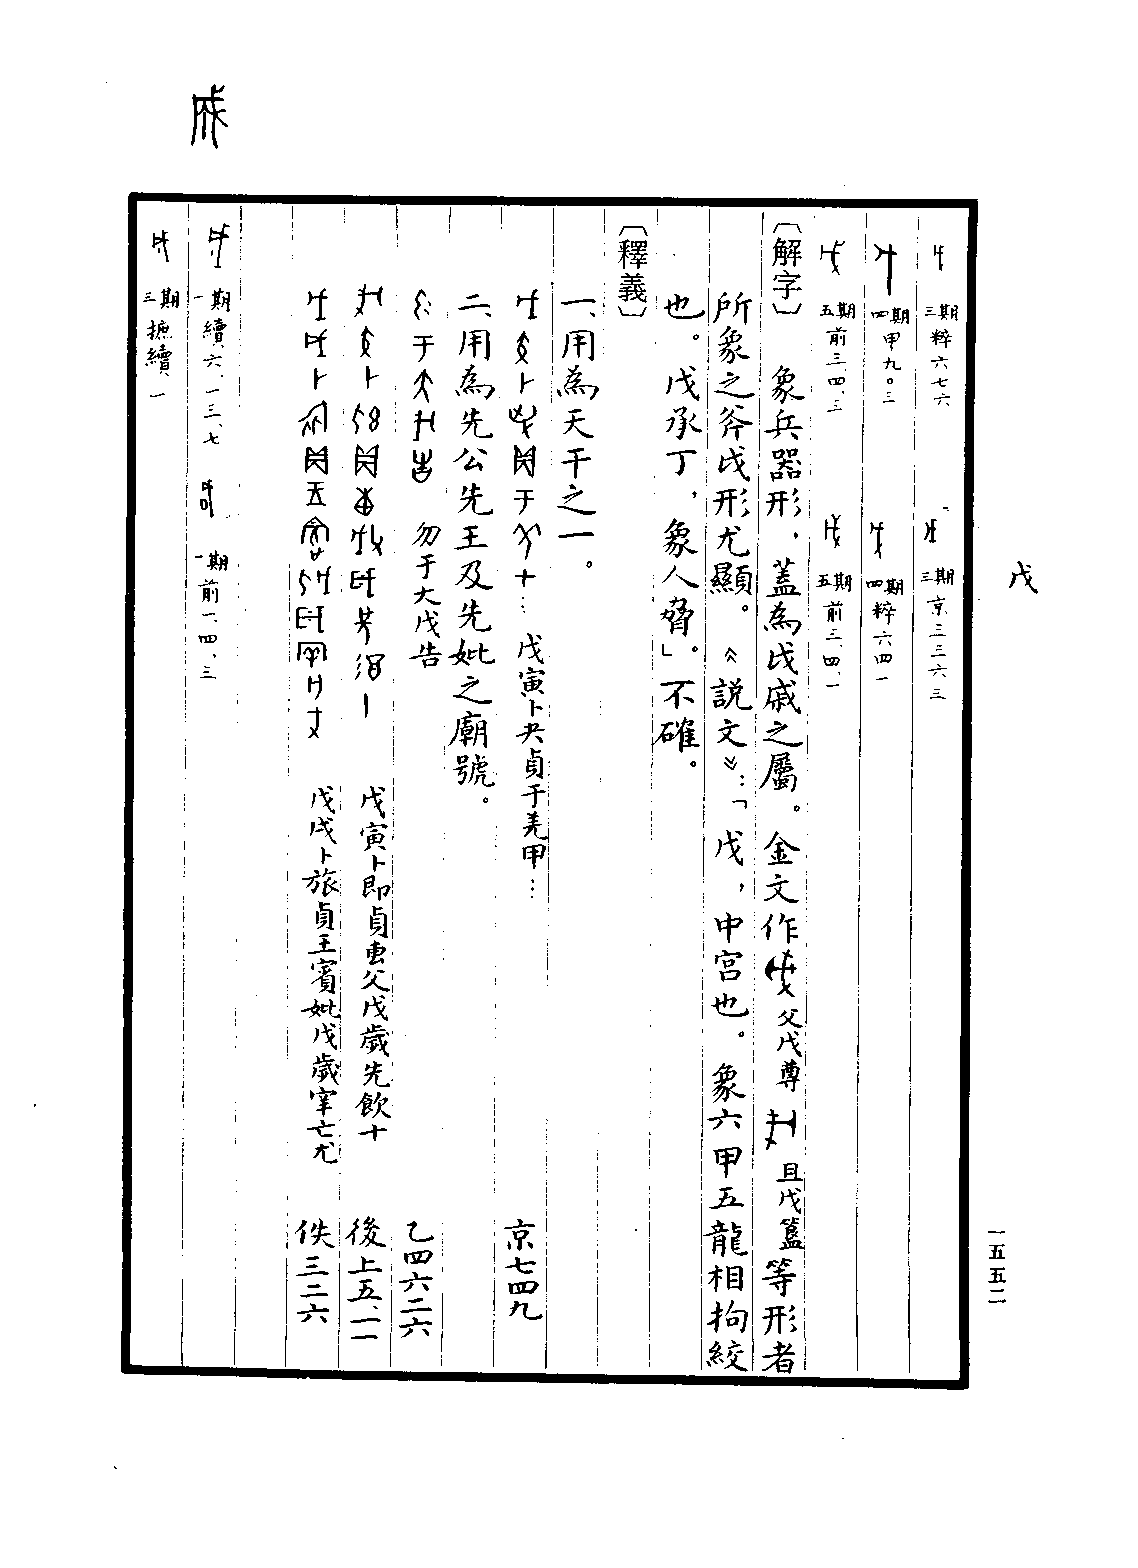 戊
一五五二
三期 粹六七六
三期 京三三六三
四期 甲九〇三
四期 粹六四一
五期 前三、四、三
五期 前三、四、一
〔解字〕 象兵器形，蓋為戉戚之屬。金文作 父戊尊 且戊簋 等形者
所象之斧戉形尤顯。《說文》：「戊，中宮也。象六甲五龍相拘絞
也。戊承丁，象人脅。」不確。
〔釋義〕
一、用為天干之一。
戊寅卜 貞于羌甲… 京七四九
二、用為先公先王及先妣之廟號。
勿于大戊告 乙四六二六
戊寅卜即貞叀父戊歲先飲十 後上五、一一
戊戌卜旅貞王賓妣戊歲宰亡尤 佚三二六
成
一期 續六、一三、七 一期 前一、四、三
三期 摭續一